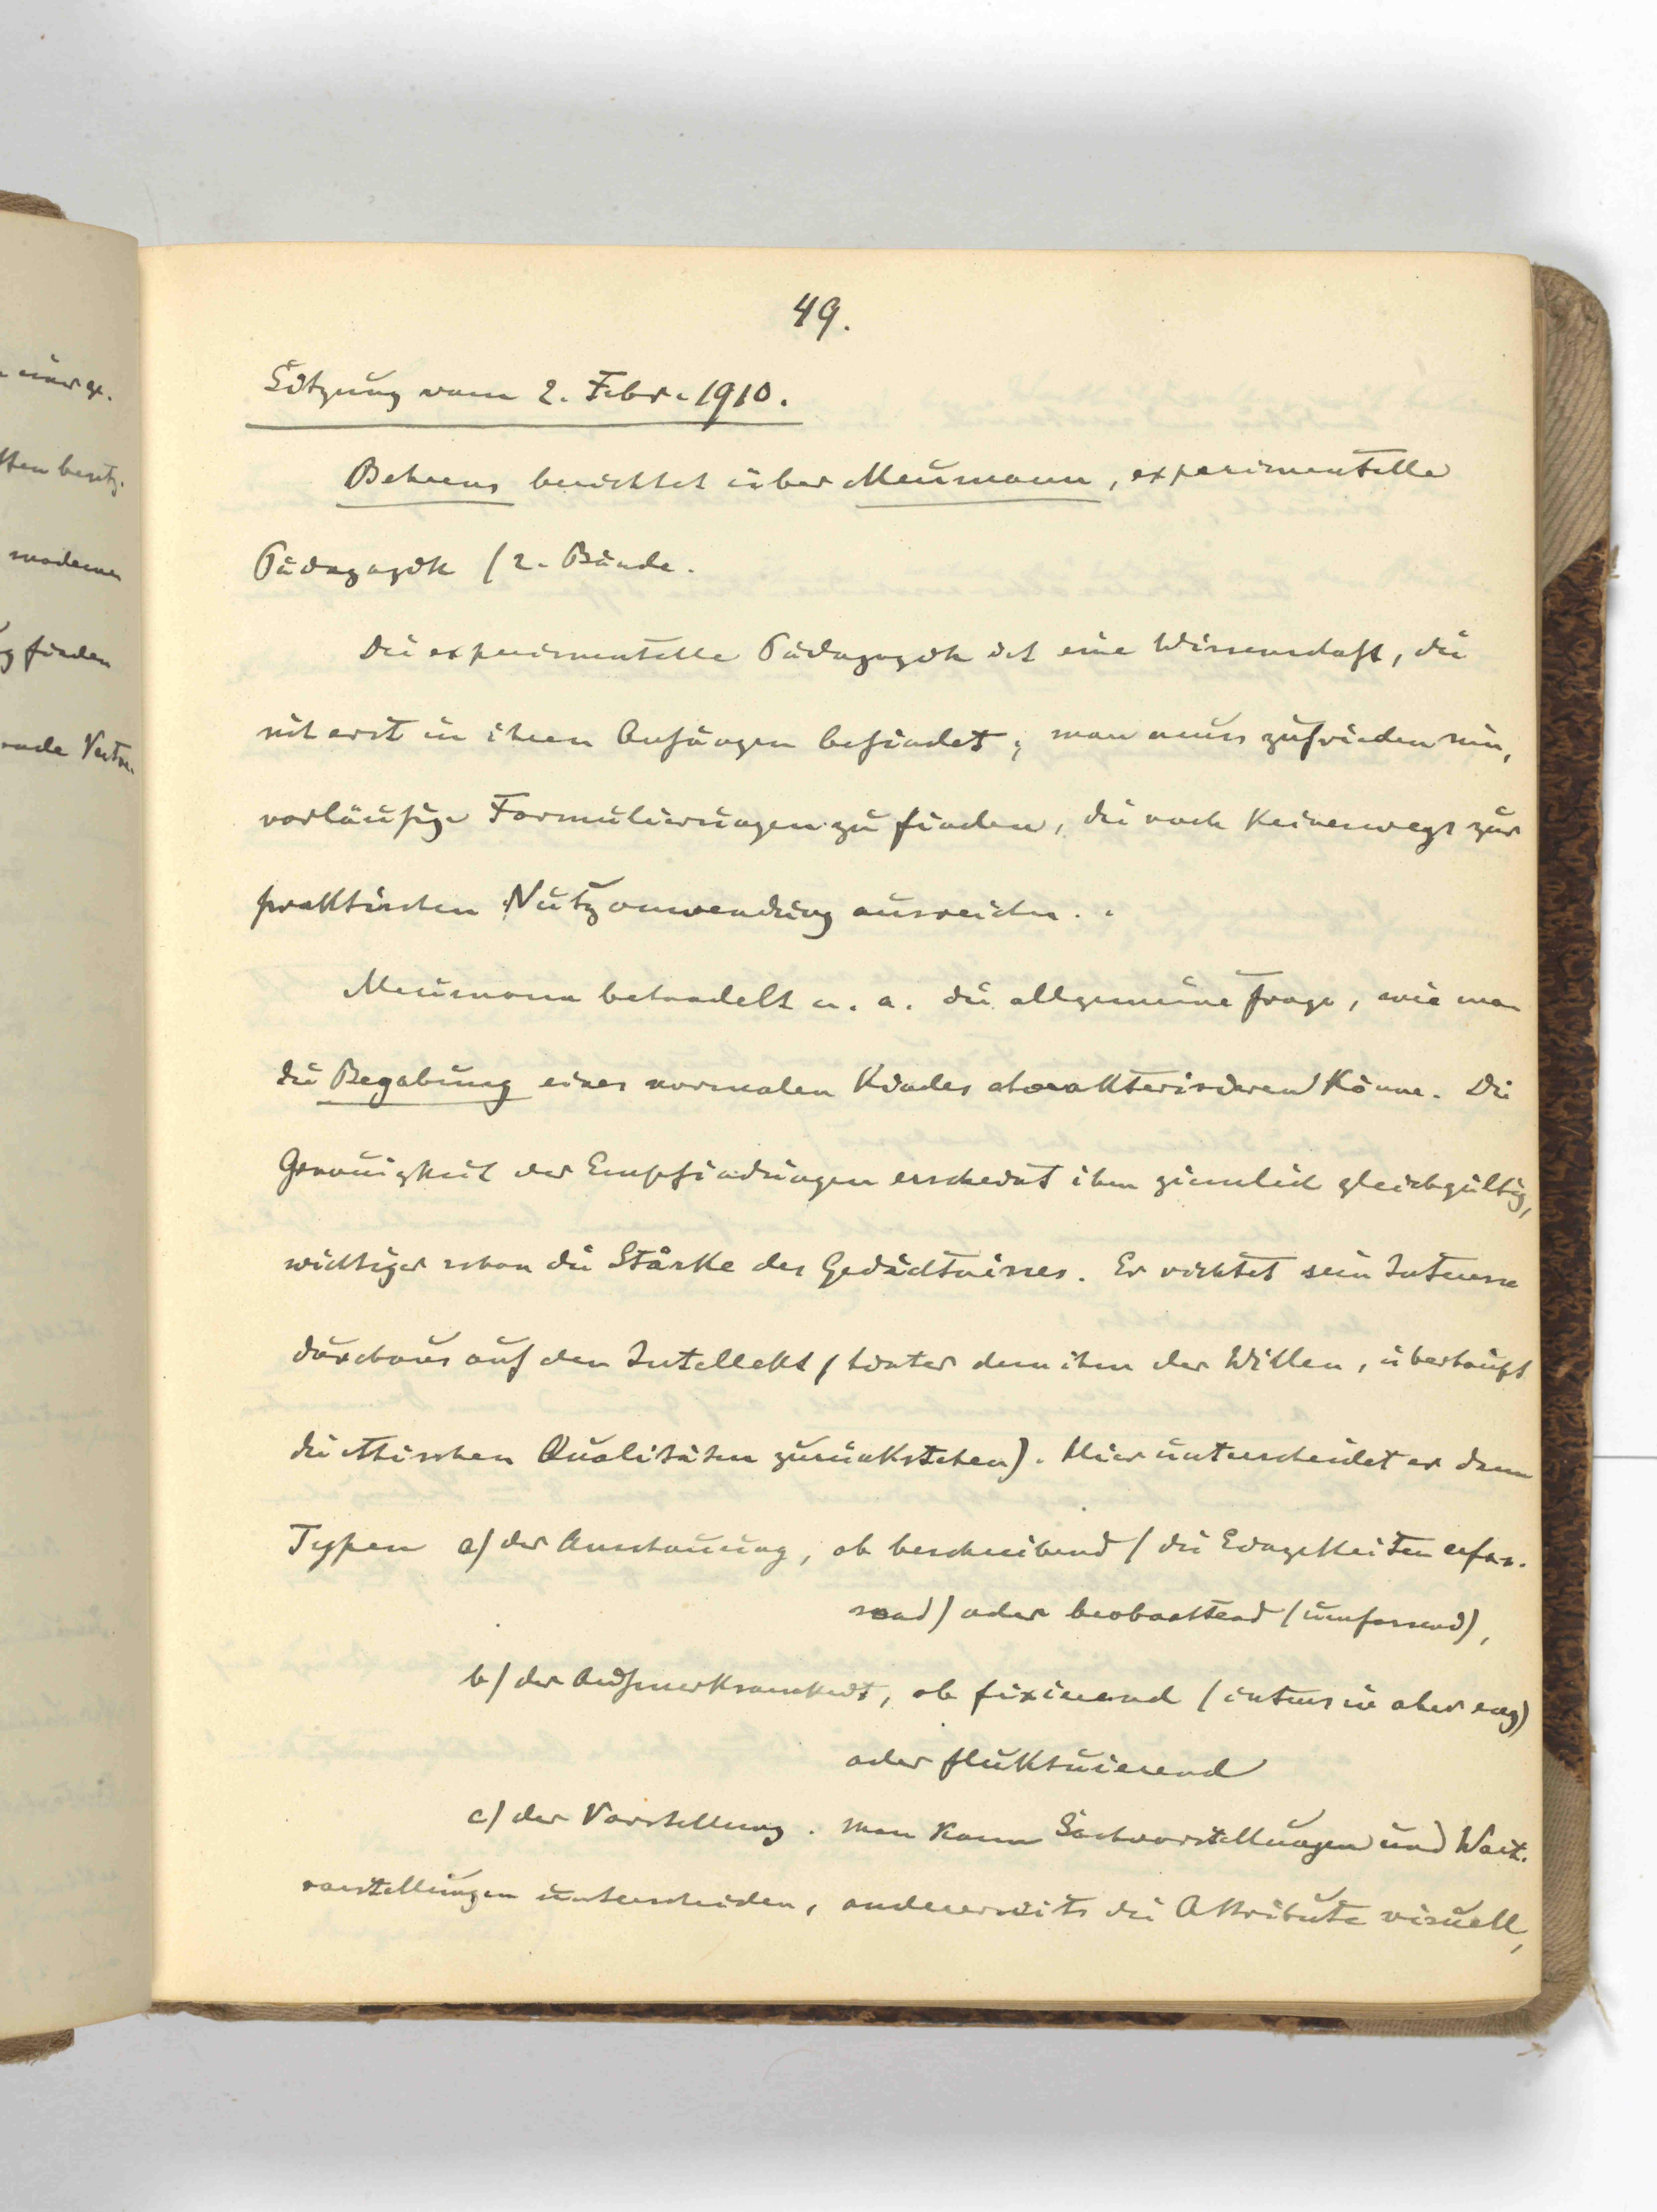 49.
Sitzung vom 2. Febr. 1910.
Behrens berichtet über Meumann, experimentelle
Pädagogik / 2. Bände.
Die experimentelle Pädagogik ist eine Wissenschaft, die
sich erst in ihren Anfängen befindet; man muss zufrieden sein,
vorläufige Formulierungen zu finden, die noch keineswegs zur
praktischen Nutzanwendung ausreichen.
Meumann behandelt u. a. die allgemeine Frage, wie man
die Begabung eines normalen Kindes charakterisieren könne. Die
Genauigkeit der Empfindungen erscheint ihm ziemlich gleichgültig,
wichtiger schon die Stärke des Gedächtnisses. Er richtet sein Interesse
durchaus auf den Intellekt (hinter dem ihm der Willen, überhaupt
die ethischen Qualitäten zurückstehen). Hier unterscheidet er dann
Typen a) der Anschauung, ob beschreibend (die Einzelheiten erfas-
send) oder beobachtend (umfassend),
b) der Aufmerksamkeit, ob fixierend (intensiv aber eng)
oder fluktuierend
c) der Vorstellung. man kann Sachvorstellungen und Wort-
vorstellungen unterscheiden, andererseits die Attribute visuell,
einer ex.
tten besitz.
moderner
g finden
ende Vertre-